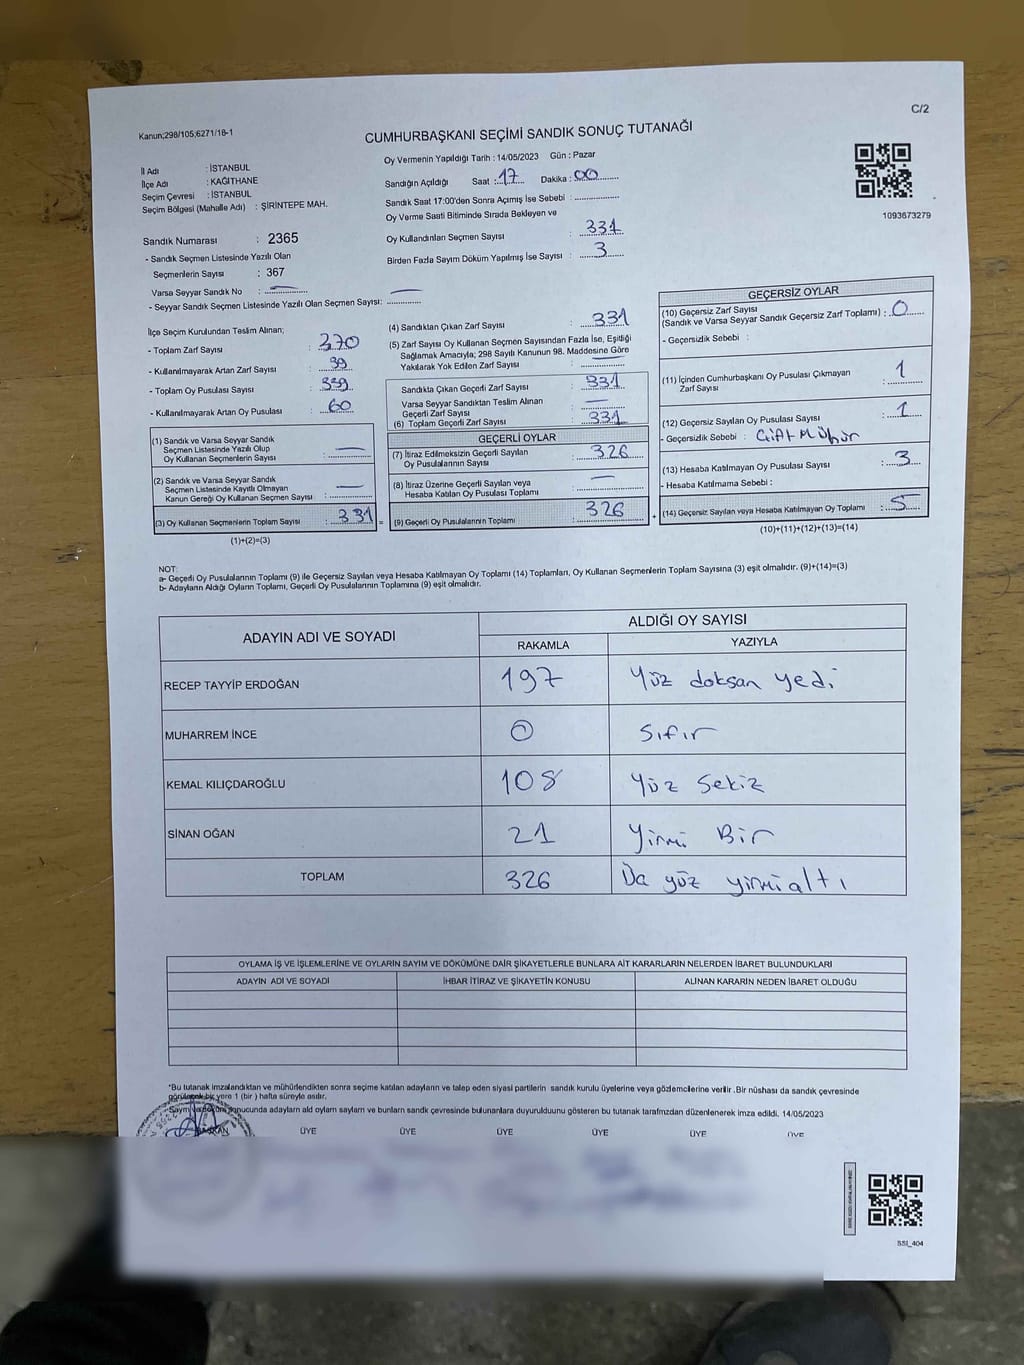 C/2
Kanun;298/105;6271/18-1
CUMHURBAŞKANI SEÇİMİ SANDIK SONUÇ TUTANAĞI
İl Adı : İSTANBUL
İlçe Adı : KAĞITHANE
Seçim Çevresi : İSTANBUL
Seçim Bölgesi (Mahalle Adı) : ŞİRİNTEPE MAH.
Sandık Numarası : 2365
- Sandık Seçmen Listesinde Yazılı Olan
Seçmenlerin Sayısı : 367
Varsa Seyyar Sandık No : —
- Seyyar Sandık Seçmen Listesinde Yazılı Olan Seçmen Sayısı: —
Oy Vermenin Yapıldığı Tarih : 14/05/2023 Gün : Pazar
Sandığın Açıldığı Saat : 17 Dakika : 00
Sandık Saat 17:00'den Sonra Açımış İse Sebebi :
Oy Verme Saati Bitiminde Sırada Bekleyen ve
Oy Kullandırılan Seçmen Sayısı : 331
Birden Fazla Sayım Döküm Yapılmış İse Sayısı : 3
1093673279
İlçe Seçim Kurulundan Teslim Alınan;
- Toplam Zarf Sayısı : 370
- Kullanılmayarak Artan Zarf Sayısı : 39
- Toplam Oy Pusulası Sayısı : 339
- Kullanılmayarak Artan Oy Pusulası : 60
(1) Sandık ve Varsa Seyyar Sandık
Seçmen Listesinde Yazılı Olup
Oy Kullanan Seçmenlerin Sayısı : —
(2) Sandık ve Varsa Seyyar Sandık
Seçmen Listesinde Kayıtlı Olmayan
Kanun Gereği Oy Kullanan Seçmen Sayısı : —
(3) Oy Kullanan Seçmenlerin Toplam Sayısı : 331
(1)+(2)=(3)
(4) Sandıktan Çıkan Zarf Sayısı : 331
(5) Zarf Sayısı Oy Kullanan Seçmen Sayısından Fazla İse, Eşitliği
Sağlamak Amacıyla; 298 Sayılı Kanunun 98. Maddesine Göre
Yakılarak Yok Edilen Zarf Sayısı : —
Sandıkta Çıkan Geçerli Zarf Sayısı : 331
Varsa Seyyar Sandıktan Teslim Alınan
Geçerli Zarf Sayısı : —
(6) Toplam Geçerli Zarf Sayısı : 331
GEÇERLİ OYLAR
(7) İtiraz Edilmeksizin Geçerli Sayılan
Oy Pusulalarının Sayısı : 326
(8) İtiraz Üzerine Geçerli Sayılan veya
Hesaba Katılan Oy Pusulası Toplamı : —
= (9) Geçerli Oy Pusulalarının Toplamı : 326
GEÇERSİZ OYLAR
(10) Geçersiz Zarf Sayısı
(Sandık ve Varsa Seyyar Sandık Geçersiz Zarf Toplamı) : 0
- Geçersizlik Sebebi :
(11) İçinden Cumhurbaşkanı Oy Pusulası Çıkmayan
Zarf Sayısı : 1
(12) Geçersiz Sayılan Oy Pusulası Sayısı : 1
- Geçersizlik Sebebi : Çift Mühür
(13) Hesaba Katılmayan Oy Pusulası Sayısı : 3
- Hesaba Katılmama Sebebi :
+ (14) Geçersiz Sayılan veya Hesaba Katılmayan Oy Toplamı : 5
(10)+(11)+(12)+(13)=(14)
NOT:
a- Geçerli Oy Pusulalarının Toplamı (9) ile Geçersiz Sayılan veya Hesaba Katılmayan Oy Toplamı (14) Toplamları, Oy Kullanan Seçmenlerin Toplam Sayısına (3) eşit olmalıdır. (9)+(14)=(3)
b- Adayların Aldığı Oyların Toplamı, Geçerli Oy Pusulalarının Toplamına (9) eşit olmalıdır.
ADAYIN ADI VE SOYADI
ALDIĞI OY SAYISI
RAKAMLA YAZIYLA
RECEP TAYYİP ERDOĞAN 197 Yüz doksan yedi
MUHARREM İNCE 0 Sıfır
KEMAL KILIÇDAROĞLU 108 Yüz Sekiz
SİNAN OĞAN 21 Yirmi Bir
TOPLAM 326 yüz yirmialtı
OYLAMA İŞ VE İŞLEMLERİNE VE OYLARIN SAYIM VE DÖKÜMÜNE DAİR ŞİKAYETLERLE BUNLARA AİT KARARLARIN NELERDEN İBARET BULUNDUKLARI
ADAYIN ADI VE SOYADI İHBAR İTİRAZ VE ŞİKAYETİN KONUSU ALINAN KARARIN NEDEN İBARET OLDUĞU
*Bu tutanak imzalandıktan ve mühürlendikten sonra seçime katılan adayların ve talep eden siyasi partilerin sandık kurulu üyelerine veya gözlemcilerine verilir .Bir nüshası da sandık çevresinde
görülecek bir yere 1 (bir ) hafta süreyle asılır.
Sayım ve döküm sonucunda adayların ald oylam saylam ve bunlarn sandk çevresinde bulunanlara duyurulduunu gösteren bu tutanak tarafmzdan düzenlenerek imza edildi. 14/05/2023
BAŞKAN ÜYE ÜYE ÜYE ÜYE ÜYE ÜYE
SSI_404